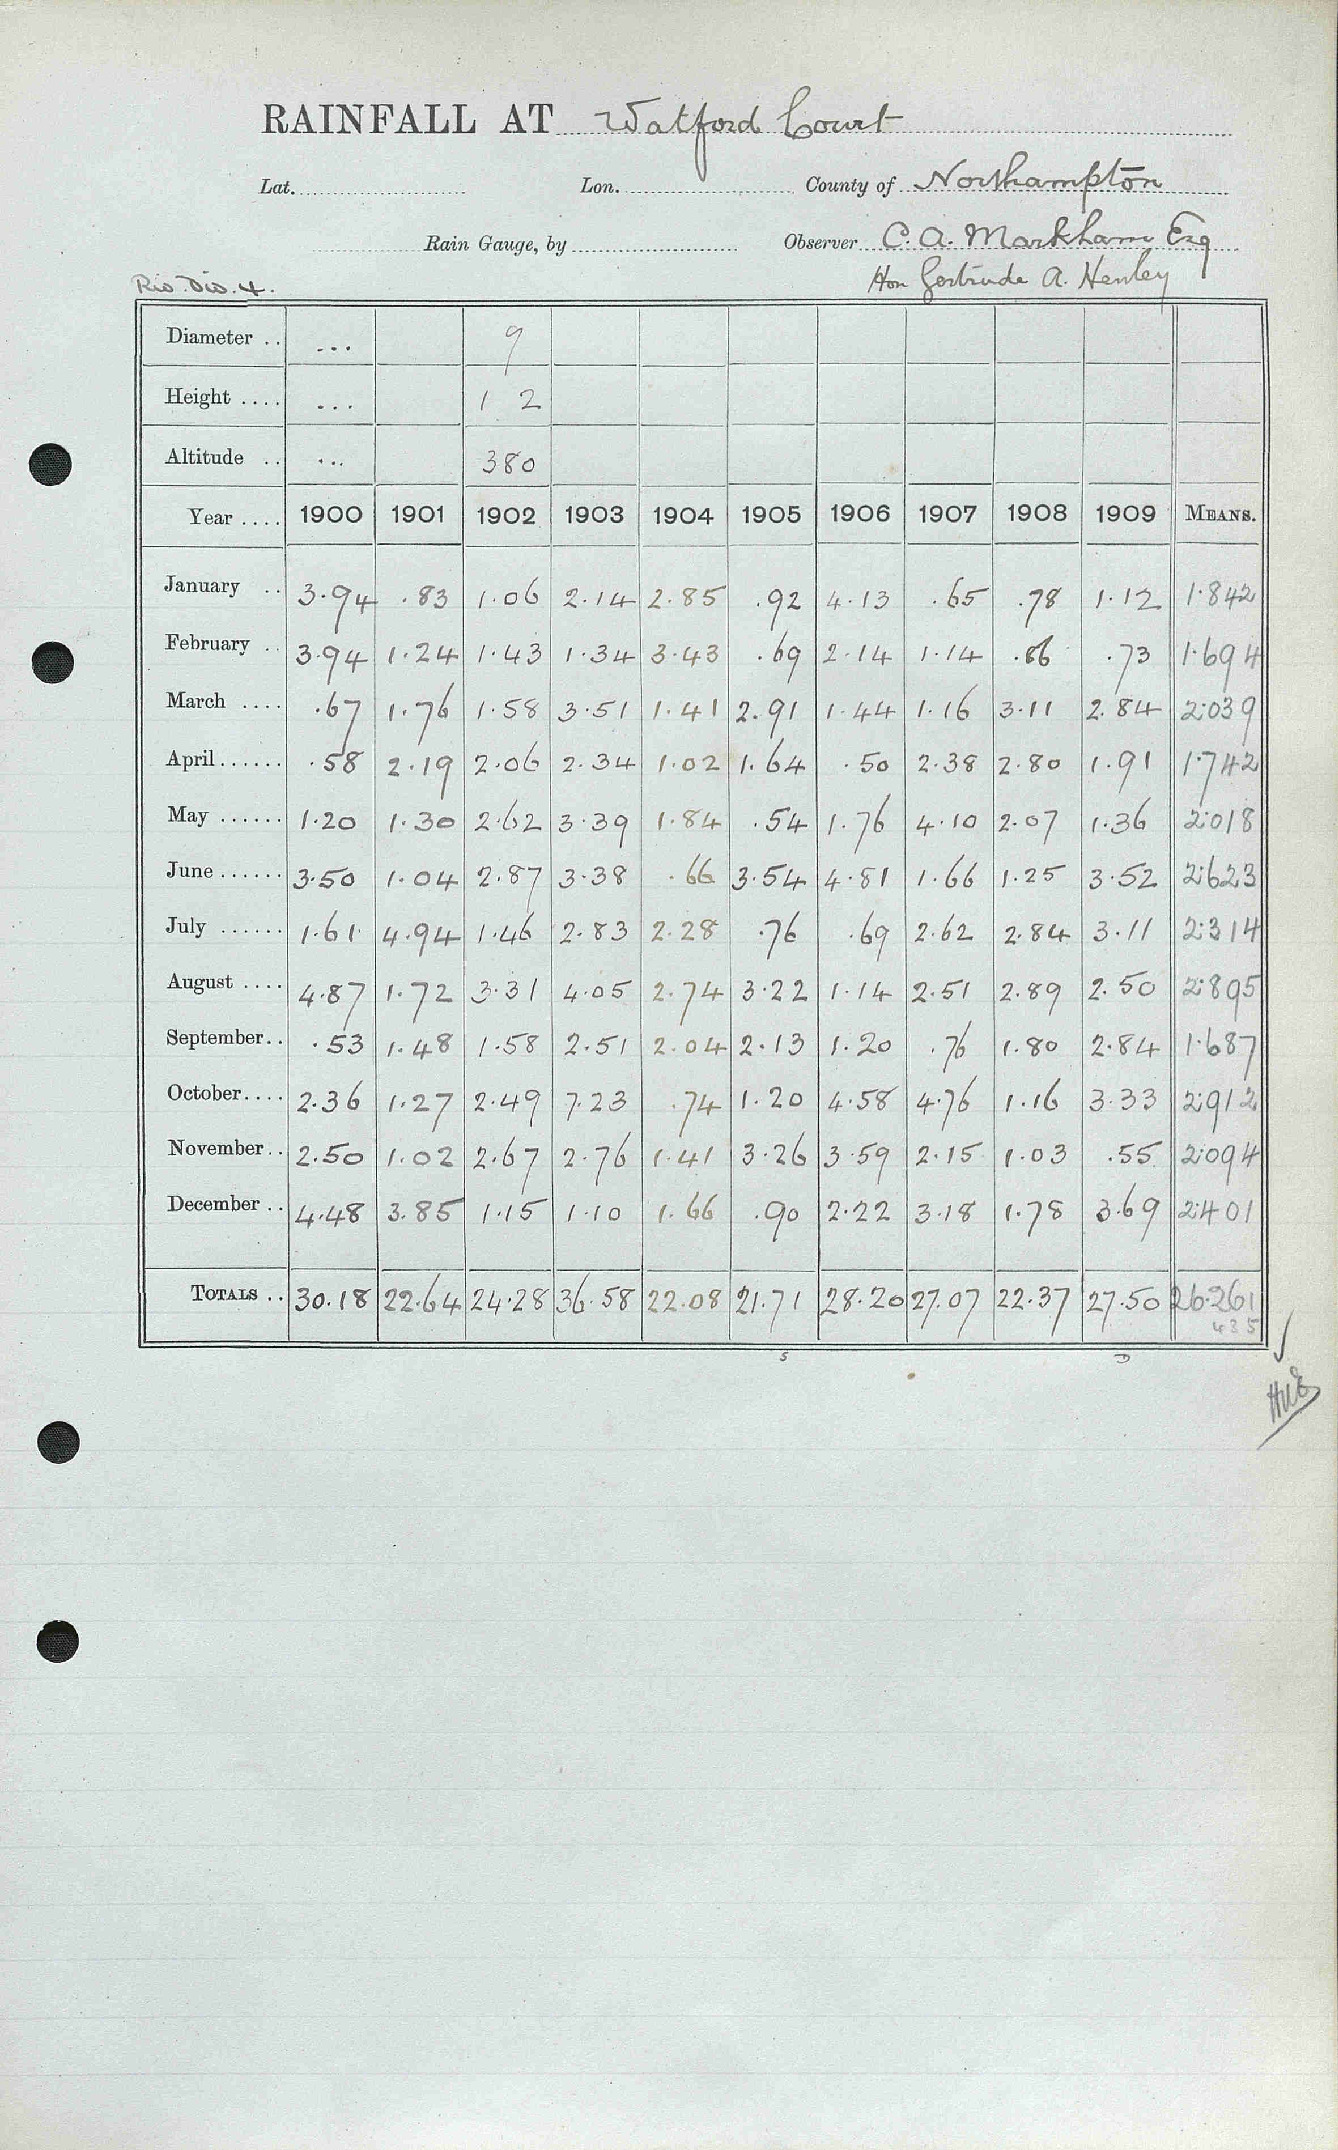 RAINFALL AT Watford Court
Lat. Lon. County of Northampton
Rain Gauge, by Observer C. A. Markham Esq
Riv. Dis. 4. Hon Gertrude A. Henley
Diameter .. ... 9
Height .... ... 1 2
Altitude .. ... 380
Year .... 1900 1901 1902 1903 1904 1905 1906 1907 1908 1909 MEANS.
January .. 3.94 .83 1.06 2.14 2.85 .92 4.13 .65 .78 1.12 1.842
February .. 3.94 1.24 1.43 1.34 3.43 .69 2.14 1.14 .86 .73 1.694
March .... .67 1.76 1.58 3.51 1.41 2.91 1.44 1.16 3.11 2.84 2.039
April ...... .58 2.19 2.06 2.34 1.02 1.64 .50 2.38 2.80 1.91 1.742
May ...... 1.20 1.30 2.62 3.39 1.84 .54 1.76 4.10 2.07 1.36 2.018
June ...... 3.50 1.04 2.87 3.38 .66 3.54 4.81 1.66 1.25 3.52 2.623
July ...... 1.61 4.94 1.46 2.83 2.28 .76 .69 2.62 2.84 3.11 2.314
August .... 4.87 1.72 3.31 4.05 2.74 3.22 1.14 2.51 2.89 2.50 2.895
September.. .53 1.48 1.58 2.51 2.04 2.13 1.20 .76 1.80 2.84 1.687
October.... 2.36 1.27 2.49 7.23 .74 1.20 4.58 4.76 1.16 3.33 2.912
November.. 2.50 1.02 2.67 2.76 1.41 3.26 3.59 2.15 1.03 .55 2.094
December .. 4.48 3.85 1.15 1.10 1.66 .90 2.22 3.18 1.78 3.69 2.401
TOTALS .. 30.18 22.64 24.28 36.58 22.08 21.71 28.20 27.07 22.37 27.50 26.261
435
S D